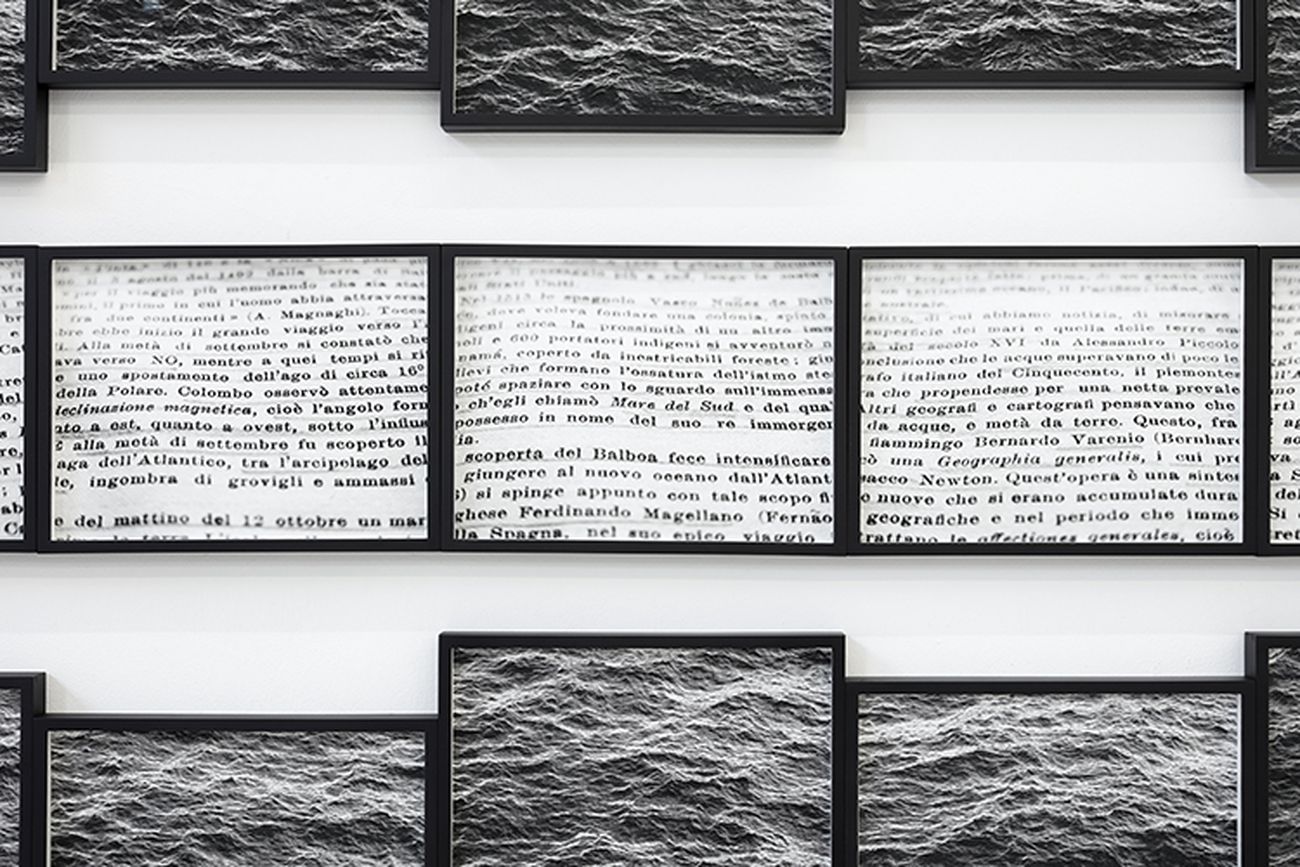 3 agosto del 1492 dalla barra di
per viaggio più memorando che sia stat
il primo in cui l'uomo abbia attraversa
fra due continenti » (A. Magnaghi). Tocca
bre ebbe inizio il grande viaggio verso l'
i. Alla metà di settembre si constatò che
ava verso NO, mentre a quei tempi si ri
e uno spostamento dell'ago di circa 16°
della Polare. Colombo osservò attentame
declinasione magnetica, cioè l'angolo form
nto a est, quanto a ovest, sotto l'influs
È alla metà di settembre fu scoperto il
aga dell'Atlantico, tra l'arcipelago del
le, ingombra di grovigli e ammassi
e del mattino del 12 ottobre un mar
la terra
Stati Uniti.
Nel 1513 lo spagnolo Vasco Nuñez de Balb
dove voleva fondare una colonia, spinto
digeni circa la prossimità di un altro im
oli e 600 portatori indigeni si avventurò
namá, coperto da inestricabili foreste; giu
ilievi che formano l'ossatura dell'istmo ste
poté spaziare con lo sguardo sull'immensa
ch'egli chiamò Mare del Sud e del qua
possesso in nome del suo re immerger
ia.
scoperta del Balboa fece intensificare
giungere al nuovo oceano dall'Atlant
) si spinge appunto con tale scopo fi
ghese Ferdinando Magellano (Fernão
lla Spagna, nel suo epico viaggio
australe.
di cui abbiamo notizia, di misurare
superficie dei mari e quella delle terre em
del secolo XVI da Alessandro Piccolo
nclusione che le acque superavano di poco le
afo italiano del Cinquecento, il piemontes
va che propendesse per una netta prevale
Altri geografi e cartografi pensavano che
da acque, e metà da terre. Questo, fra
fiammingo Bernardo Varenio (Bernhard
cò una Geographia generalis, i cui pre
sacco Newton. Quest'opera è una sintes
e nuove che si erano accumulate dura
geografiche e nel periodo che imme
trattano le affectiones generales, cioè